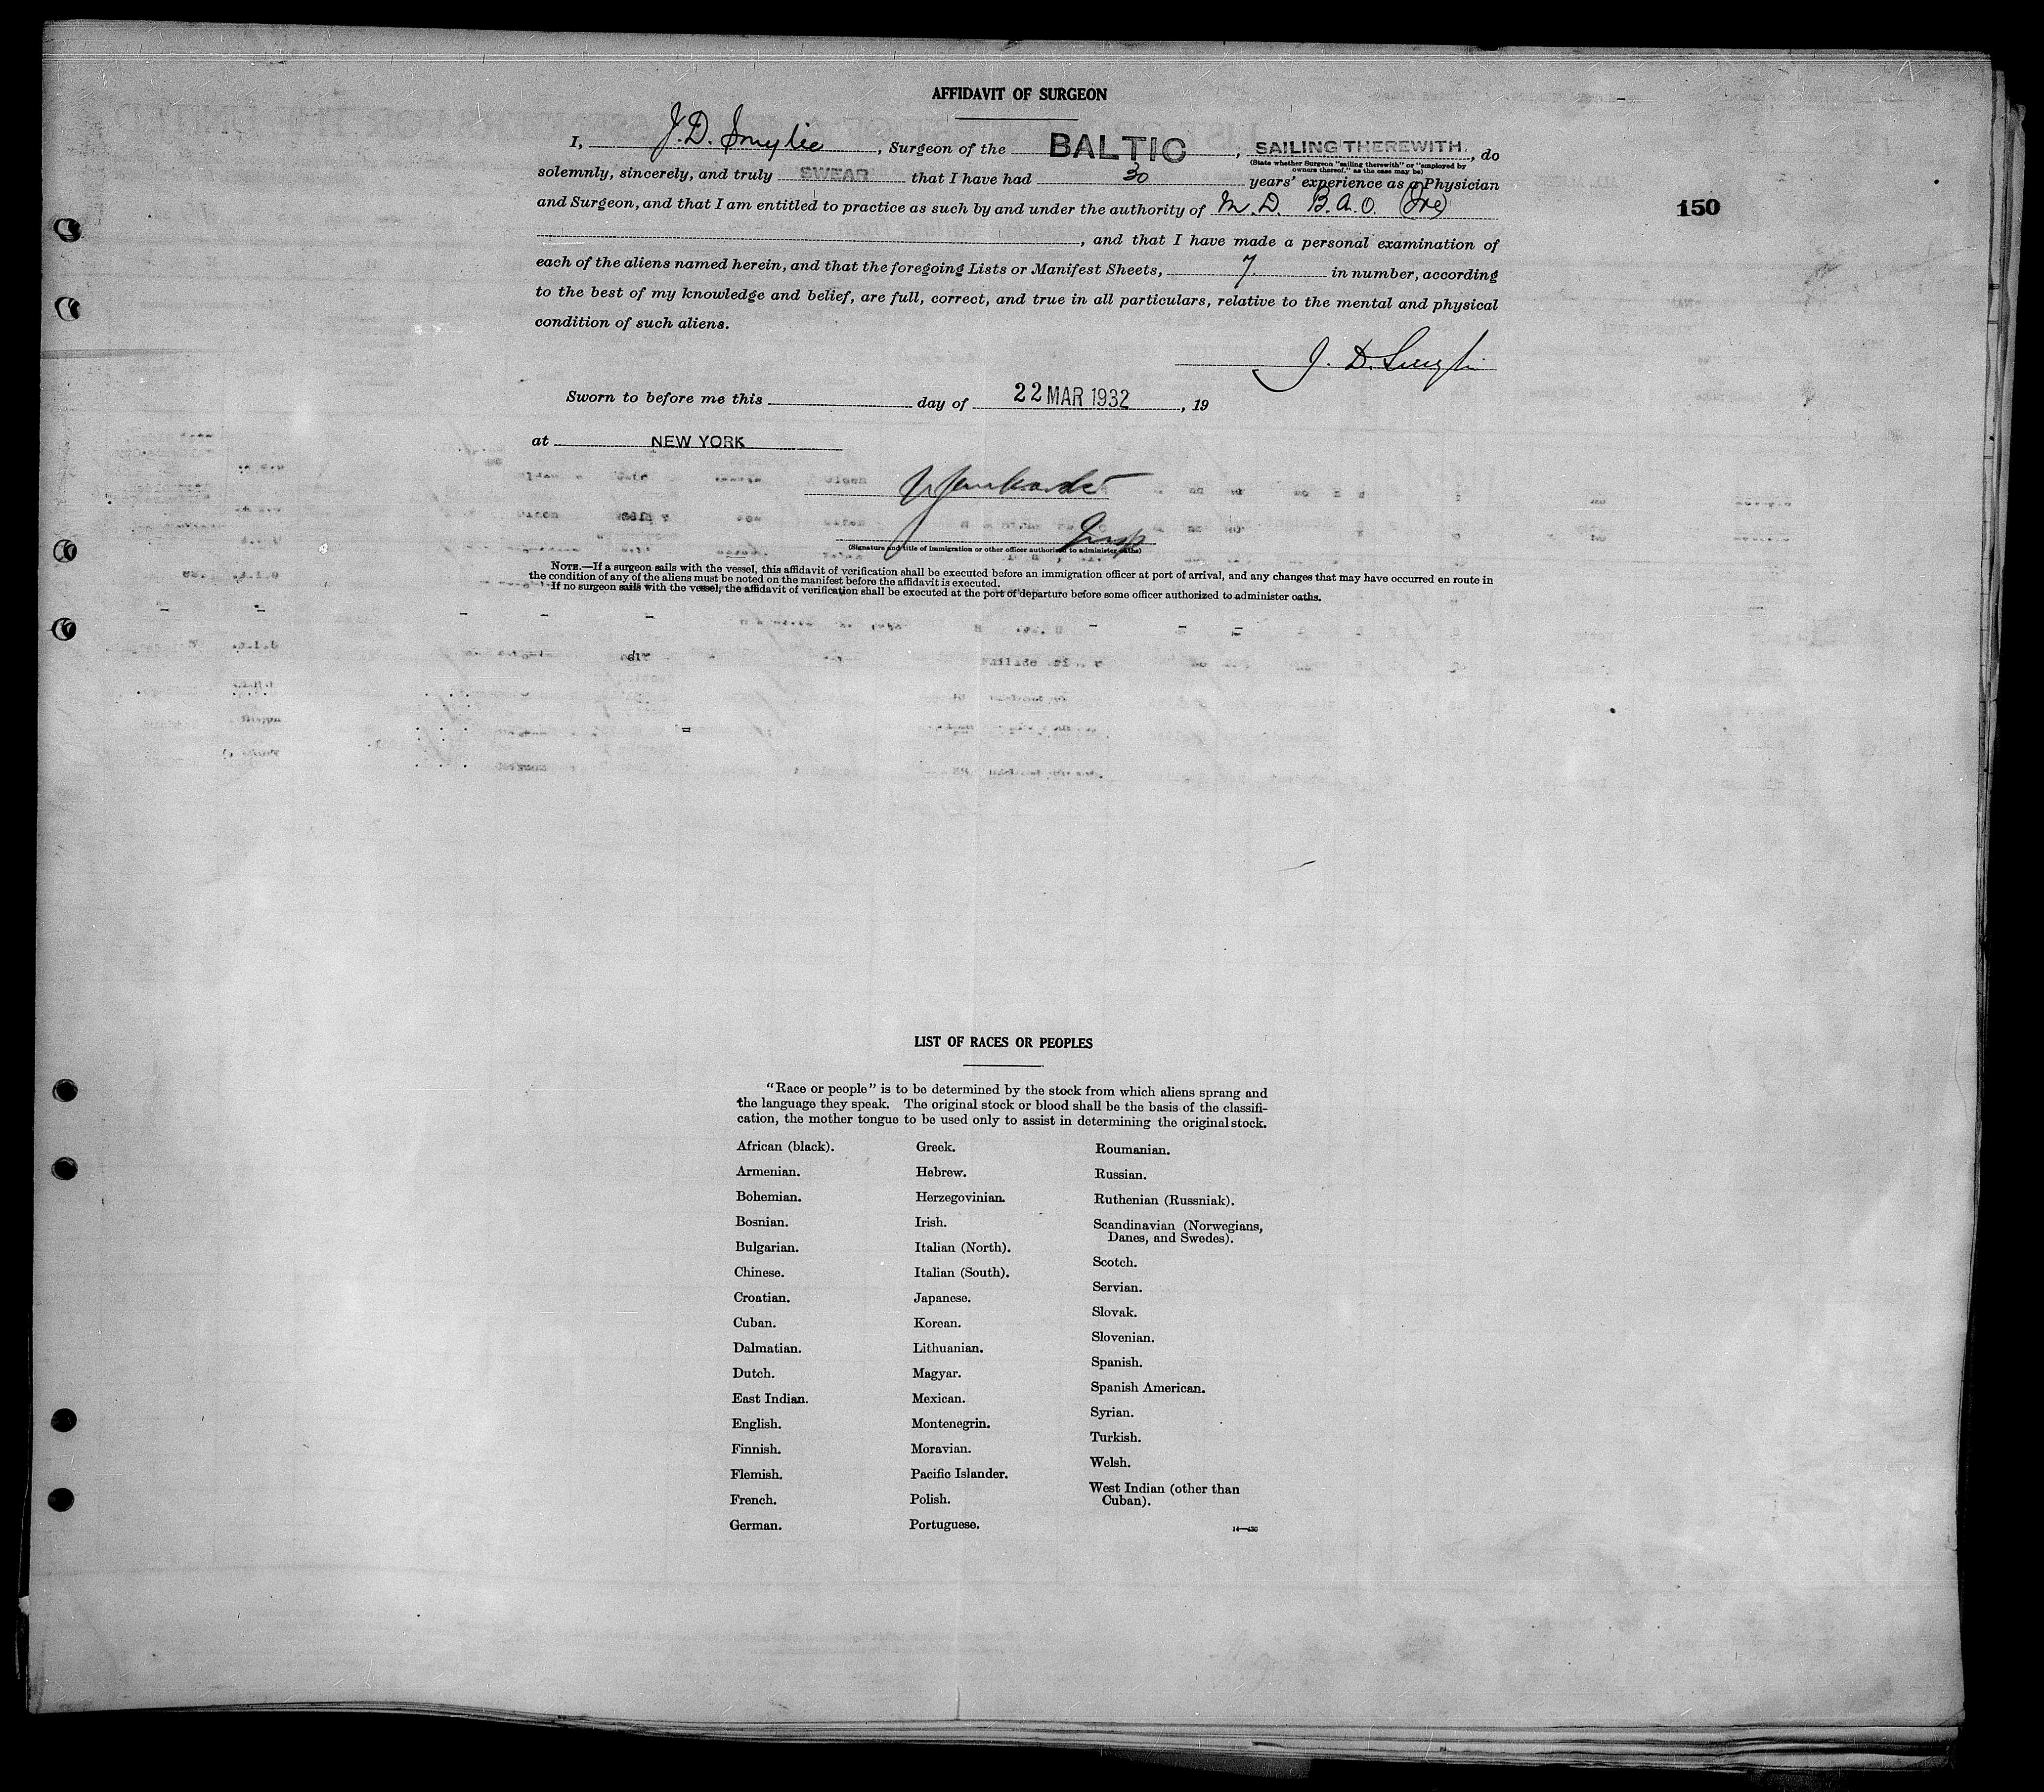 AFFIDAVIT OF SURGEON
I, J. D. Smylie, Surgeon of the BALTIC, SAILING THEREWITH, do
(State whether Surgeon "sailing therewith" or "employed by
owners thereof," as the case may be)
solemnly, sincerely, and truly SWEAR that I have had 30 years' experience as a Physician
and Surgeon, and that I am entitled to practice as such by and under the authority of M. D. B.A.O. (Ire)
150
, and that I have made a personal examination of
each of the aliens named herein, and that the foregoing Lists or Manifest Sheets, 7. in number, according
to the best of my knowledge and belief, are full, correct, and true in all particulars, relative to the mental and physical
condition of such aliens.
J. D. Smylie
Sworn to before me this day of 22 MAR 1932, 19
at NEW YORK
Insp
(Signature and title of immigration or other officer authorized to administer oaths)
NOTE.—If a surgeon sails with the vessel, this affidavit of verification shall be executed before an immigration officer at port of arrival, and any changes that may have occurred en route in
the condition of any of the aliens must be noted on the manifest before the affidavit is executed.
If no surgeon sails with the vessel, the affidavit of verification shall be executed at the port of departure before some officer authorized to administer oaths.
LIST OF RACES OR PEOPLES
"Race or people" is to be determined by the stock from which aliens sprang and
the language they speak. The original stock or blood shall be the basis of the classifi-
cation, the mother tongue to be used only to assist in determining the original stock.
African (black).
Armenian.
Bohemian.
Bosnian.
Bulgarian.
Chinese.
Croatian.
Cuban.
Dalmatian.
Dutch.
East Indian.
English.
Finnish.
Flemish.
French.
German.
Greek.
Hebrew.
Herzegovinian.
Irish.
Italian (North).
Italian (South).
Japanese.
Korean.
Lithuanian.
Magyar.
Mexican.
Montenegrin.
Moravian.
Pacific Islander.
Polish.
Portuguese.
Roumanian.
Russian.
Ruthenian (Russniak).
Scandinavian (Norwegians,
Danes, and Swedes).
Scotch.
Servian.
Slovak.
Slovenian.
Spanish.
Spanish American.
Syrian.
Turkish.
Welsh.
West Indian (other than
Cuban).
14—430